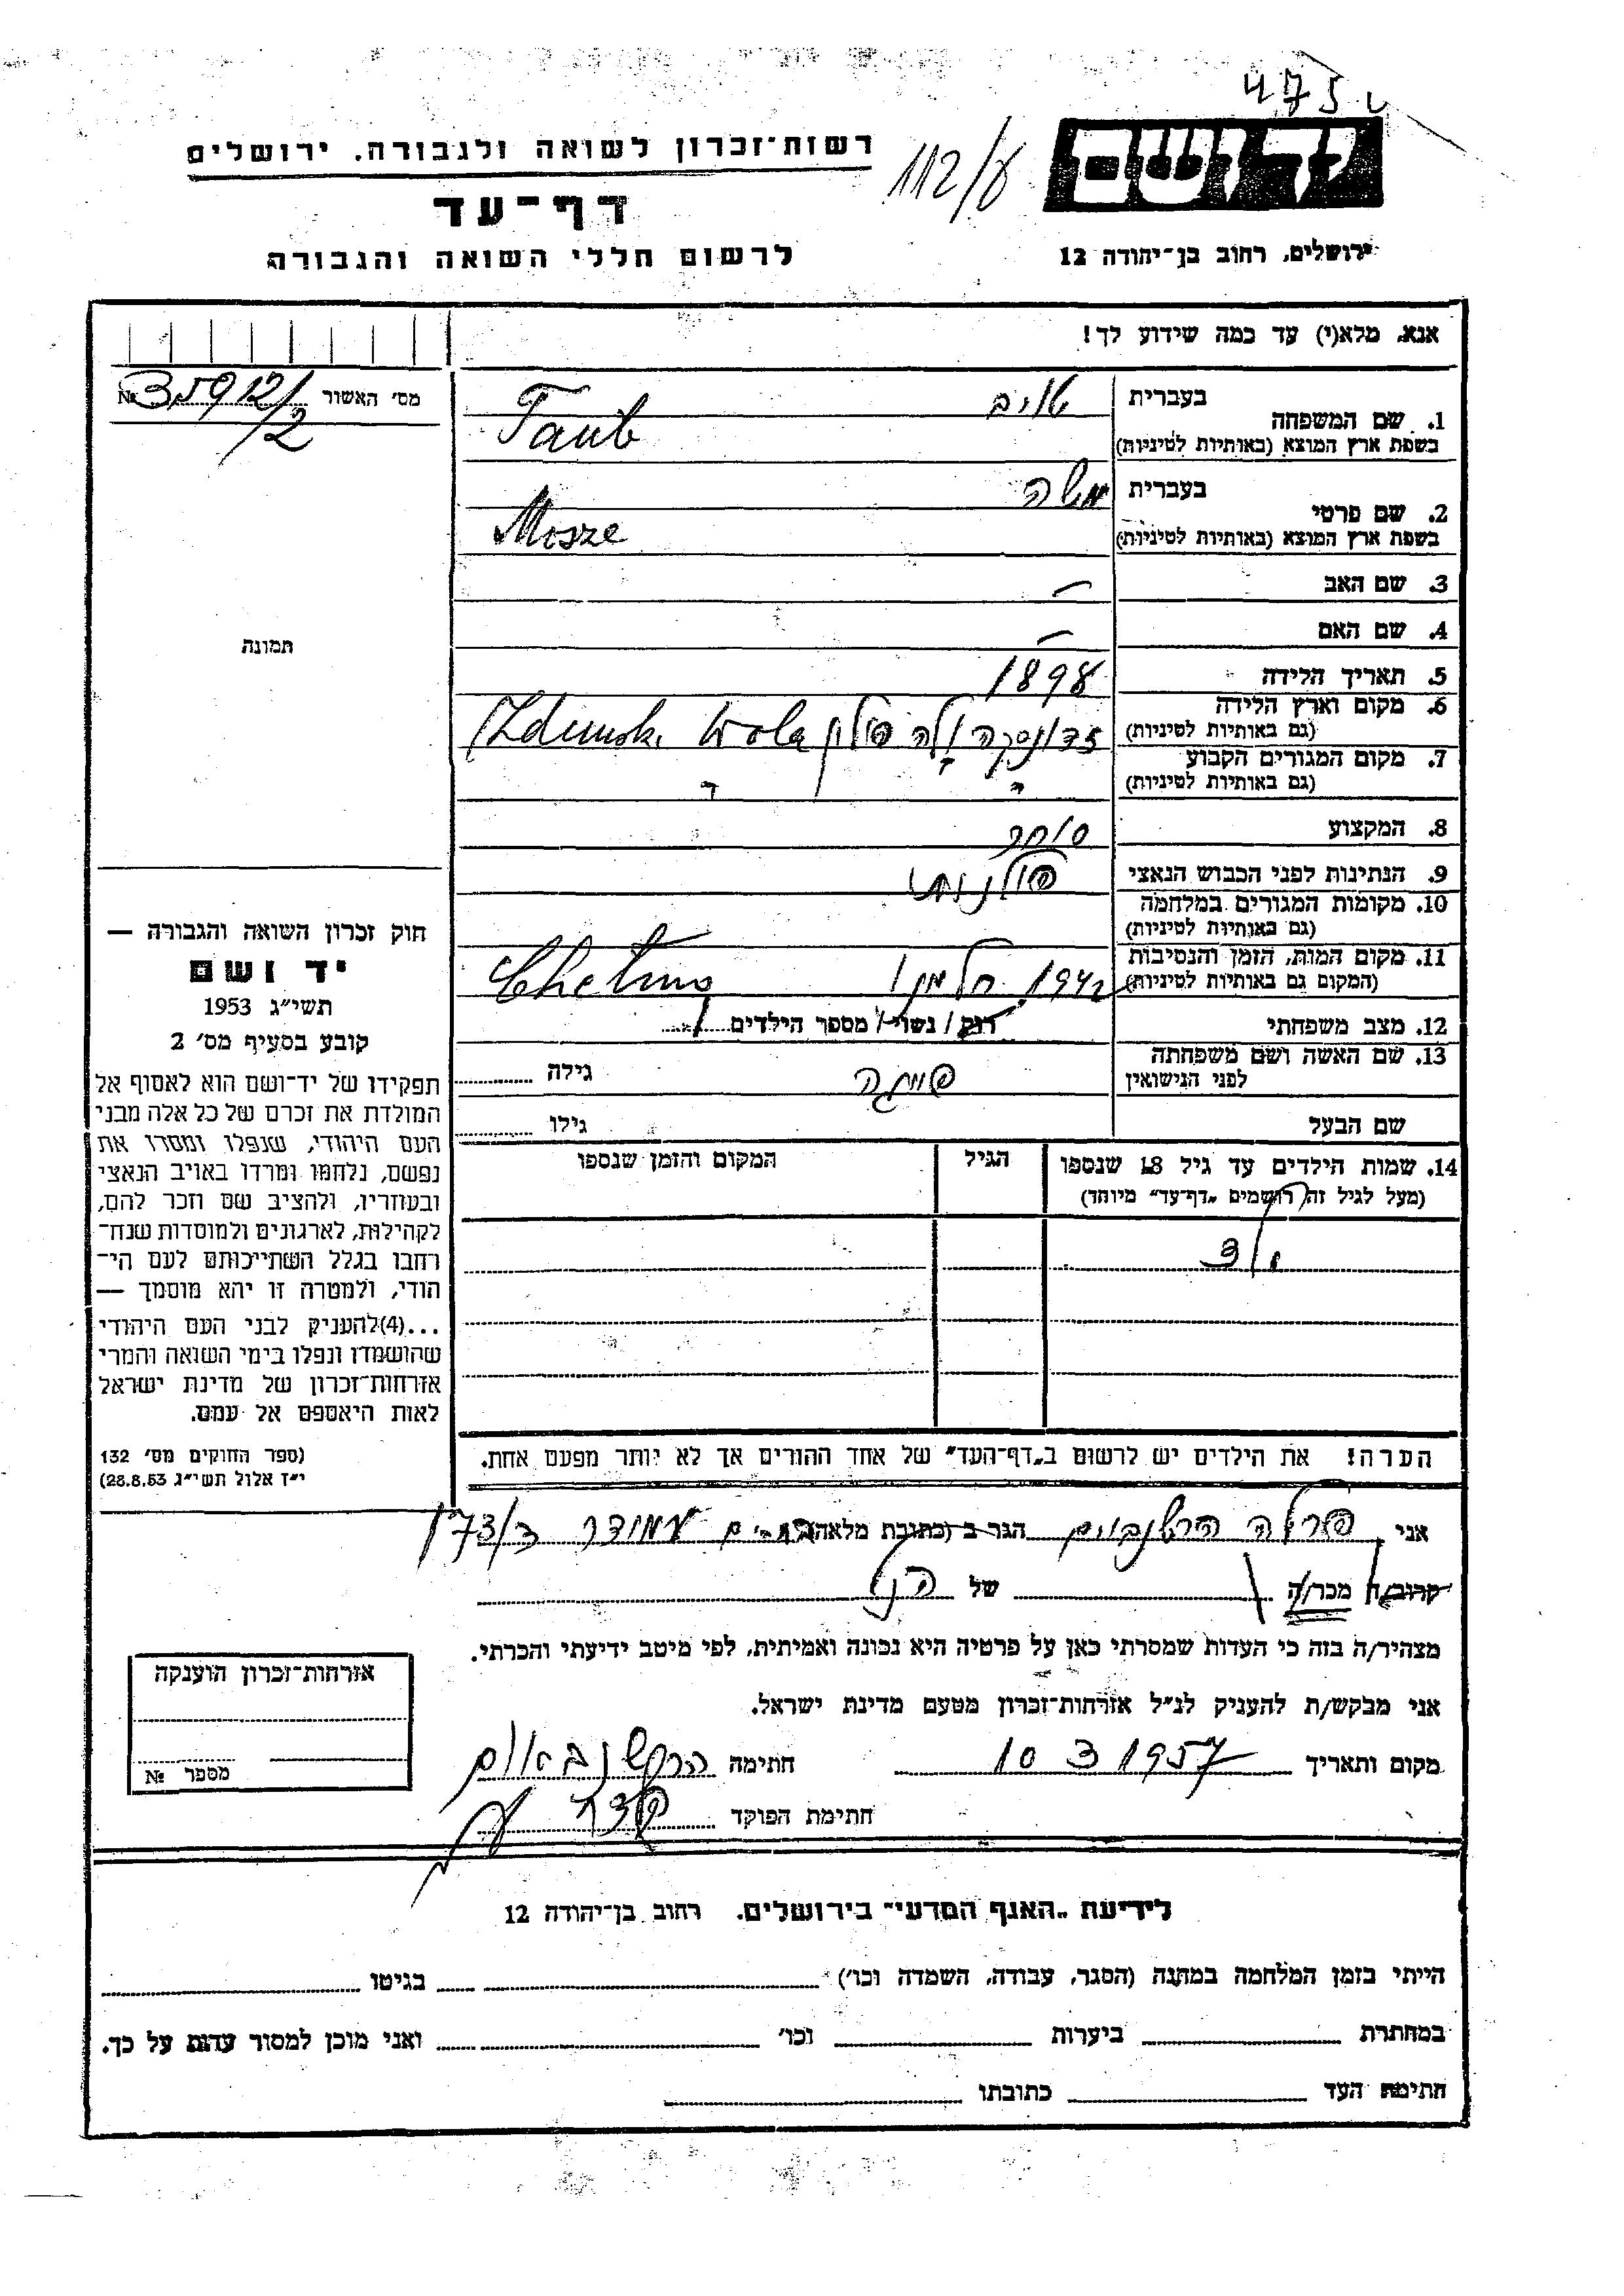 475
יד ושם
112/ע
רשות־זכרון לשואה ולגבורה. ירושלים
דף־עד
לרשום חללי השואה והגבורה
ירושלים, רחוב בן־יהודה 12
אנא, מלא(י) עד כמה שידוע לך!
מס' האשור № 35912/2
1. שם המשפחה
בעברית טויב
בשפת ארץ המוצא (באותיות לטיניות) Taub
2. שם פרטי
בעברית משה
בשפת ארץ המוצא (באותיות לטיניות) Mosze
3. שם האב —
4. שם האם —
5. תאריך הלידה 1898
6. מקום וארץ הלידה
(גם באותיות לטיניות) זדונסקה וולה פולין Zdunska Wola
7. מקום המגורים הקבוע
(גם באותיות לטיניות) " "
8. המקצוע סוחר
9. הנתינות לפני הכבוש הנאצי פולנית
10. מקומות המגורים במלחמה
(גם באותיות לטיניות)
11. מקום המות, הזמן והנסיבות
(המקום גם באותיות לטיניות) 1942 חלמנו Chelmno
12. מצב משפחתי רוק / נשוי / מספר הילדים
13. שם האשה ושם משפחתה
לפני הנישואין גילה
שם הבעל גילו
14. שמות הילדים עד גיל 18 שנספו הגיל המקום והזמן שנספו
(מעל לגיל זה רושמים „דף־עד" מיוחד)
הערה! את הילדים יש לרשום ב„דף־העד" של אחד ההורים אך לא יותר מפעם אחת.
תמונה
חוק זכרון השואה והגבורה —
יד ושם
תשי"ג 1953
קובע בסעיף מס' 2
תפקידו של יד־ושם הוא לאסוף אל
המולדת את זכרם של כל אלה מבני
העם היהודי, שנפלו ומסרו את
נפשם, נלחמו ומרדו באויב הנאצי
ובעוזריו, ולהציב שם וזכר להם,
לקהילות, לארגונים ולמוסדות שנח־
רחבו בגלל השתייכותם לעם הי־
הודי, ולמטרה זו יהא מוסמך —
...(4) להעניק לבני העם היהודי
שהושמדו ונפלו בימי השואה והמרי
אזרחות־זכרון של מדינת ישראל
לאות היאספם אל עמם.
(ספר החוקים מס' 132
י"ז אלול תשי"ג 28.8.53)
אני פרלה הרשנבוים הגר ב (כתובת מלאה) עמידר 73/3
קרוב/ה מכר/ה של הנ"ל
מצהיר/ה בזה כי העדות שמסרתי כאן על פרטיה היא נכונה ואמיתית, לפי מיטב ידיעתי והכרתי.
אני מבקש/ת להעניק לנ"ל אזרחות־זכרון מטעם מדינת ישראל.
מקום ותאריך 10 3 1957 חתימה הרשנבאום
חתימת הפוקד
אזרחות־זכרון הוענקה
מספר №
לידיעת „האגף המדעי" בירושלים. רחוב בן־יהודה 12
הייתי בזמן המלחמה במחנה (הסגר, עבודה, השמדה וכו') בגיטו
במחתרת ביערות וכו' ואני מוכן למסור עדות על כך.
חתימת העד כתובתו